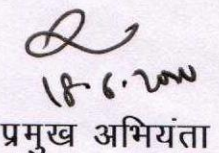 18.6.2010
प्रमुख अभियंता